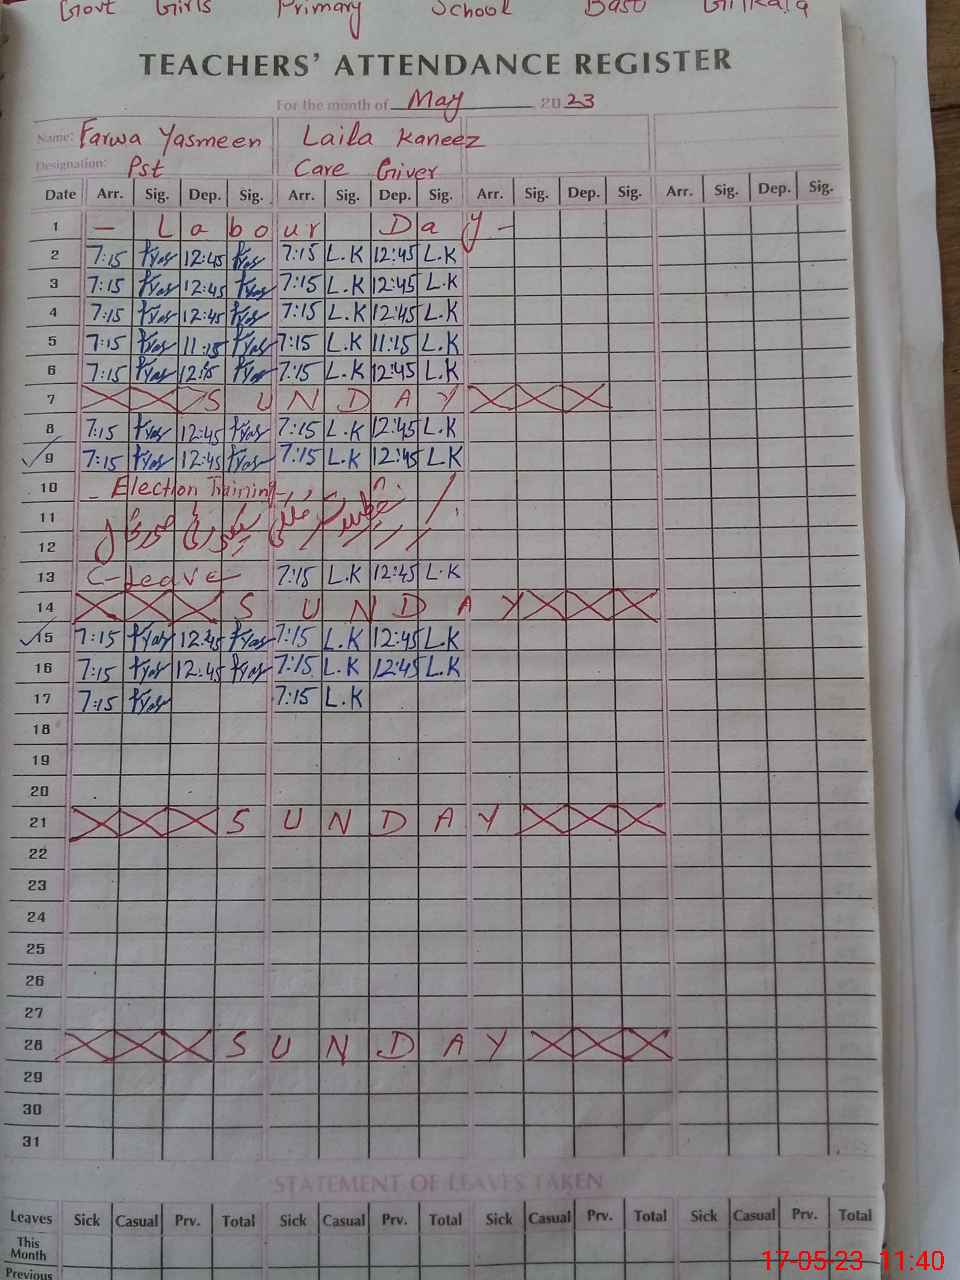 Govt Girls Primary School Basu Gilkala
TEACHERS' ATTENDANCE REGISTER
For the month of May 2023
Name: Farwa Yasmeen Laila Kaneez
Designation: Pst Care Giver
Date Arr. Sig. Dep. Sig. Arr. Sig. Dep. Sig. Arr. Sig. Dep. Sig. Arr. Sig. Dep. Sig.
1 - Labour Day -
2 7:15 fyas 12:45 fyas 7:15 L.K 12:45 L.K
3 7:15 fyas 12:45 fyas 7:15 L.K 12:45 L.K
4 7:15 fyas 12:45 fyas 7:15 L.K 12:45 L.K
5 7:15 fyas 11:15 fyas 7:15 L.K 11:15 L.K
6 7:15 fyas fyas 7:15 L.K 12:45 L.K
7 SUNDAY
8 7:15 fyas 12:45 fyas 7:15 L.K 12:45 L.K
9 7:15 fyas 12:45 fyas 7:15 L.K 12:45 L.K
10 - Election Training -
11
12
13 C-Leave 7:15 L.K 12:45 L.K
14 SUNDAY
15 7:15 fyas 12:45 fyas 7:15 L.K 12:45 L.K
16 7:15 fyas 12:45 fyas 7:15 L.K 12:45 L.K
17 7:15 fyas 7:15 L.K
18
19
20
21 SUNDAY
22
23
24
25
26
27
28 SUNDAY
29
30
31
STATEMENT OF LEAVES TAKEN
Leaves Sick Casual Prv. Total Sick Casual Prv. Total Sick Casual Prv. Total Sick Casual Prv. Total
This
Month
Previous
17-05-23 11:40